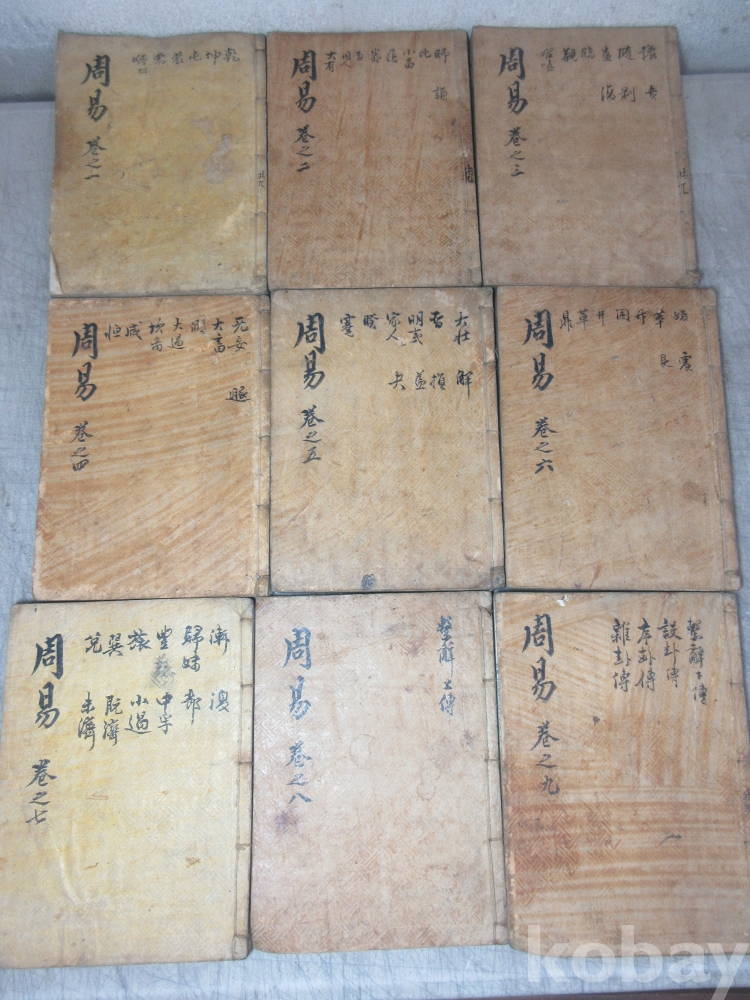 乾
坤
屯
蒙
需
周易 卷之一
共九
師 謙
比
小畜
履
泰
否
同人
大有
周易 卷之二
豫 賁
隨 剝
蠱 復
臨
觀
噬嗑
周易 卷之三
共九
无妄 遯
大畜
頤
大過
咸
恒
周易 卷之四
大壯 解
晋 損
明夷 益
家人 夬
睽
蹇
周易 卷之五
姤 震
萃 艮
升
困
井
革
鼎
周易 卷之六
漸 渙
歸妹 節
豐 中孚
旅 小過
巽 旣濟
兌 未濟
周易 卷之七
繫辭上傳
周易 卷之八
繫辭下傳
說卦傳
序卦傳
雜卦傳
周易 卷之九
kobay